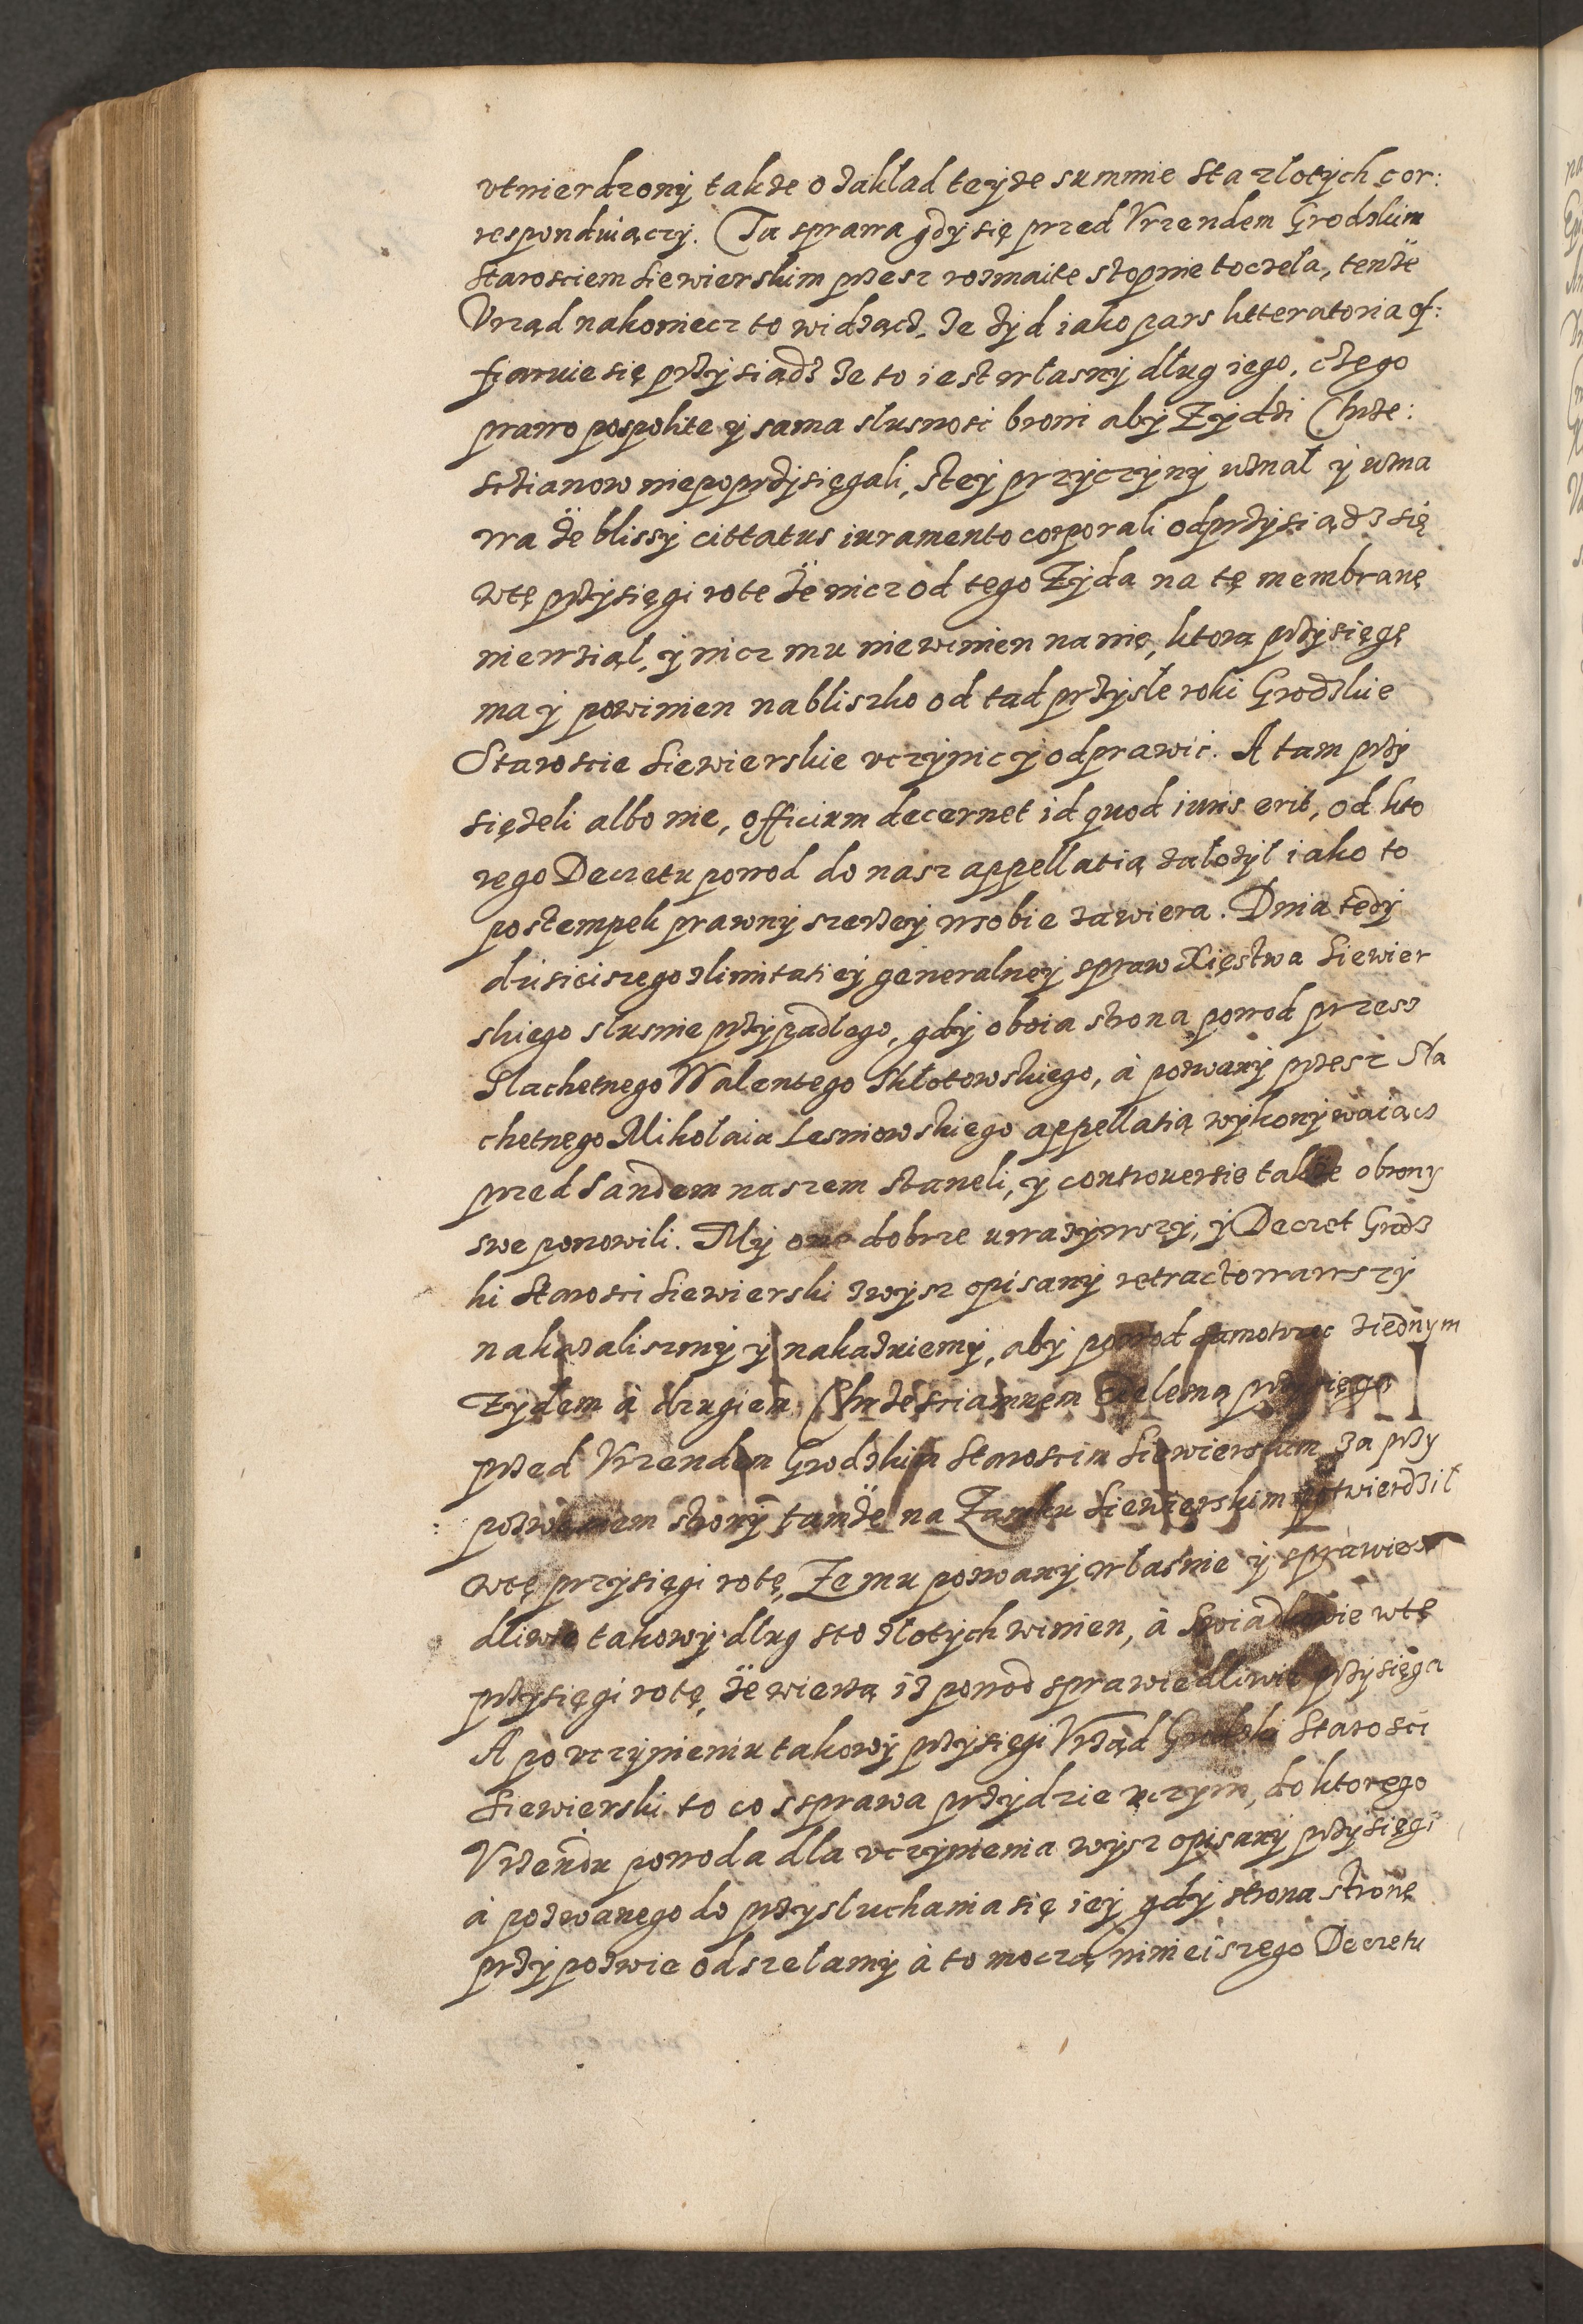 utwierdzony także o zakład teyże summie sta złotych cor:
responduiączy. Ta sprawa gdy się przed Vrzendem Grodzkim
Starosciem Siewierskim przesz rozmaite stopnie toczeła, tenże
Vrząd nakoniecz to widząc, że żyd iako pars litteratoria of:
fiaruie się przysiądz że to iest własny dług iego, czego
prawo pospolite y sama slusnosc broni aby Zydzi Chrze:
scianow niepoprzysięgali, stey przyczyny uznał y uzna
wa że blissy cittatus iuramento corporali odprzysiądz się
wtę przysięgi rote że nicz od tego Zyda na tę membranę
niewziął, y nicz mu niewinien na nię, ktora przysięgę
ma y powinien nabliszko od tad przyszłe roki Grodzkie
Staroscie Siewierskie uczynic y odprawic. A tam przy
sięzeli albo nie, officium decernet id quod iuris erit, od kto
rego Decretu powod do nasz appellatią założył iako to
postempek prawny szerzey wsobie zawiera. Dnia tedy
dzisieiszego zlimitatiey generalney spraw Xięstwa Siewier
skiego slusnie przypadłego, gdy oboia strona powod przesz
Slachetnego Walentego Skłotowskiego, à pozwany przesz Sla
chetnego Mikołaia Lesniowskiego appellatią wykonywaiącz
przed Sandem naszem staneli, y controuersie także obrony
swe ponowili. My one dobrze uwazywszy, y Decret Grodz
ki Starosci Siewierski zwysz opisany retractowawszy
nakazaliszmy y nakazuiemy, aby powod samotrzec ziednym
Zydem à drugiem Chrzescianinem przysięgo
przed Vrzendem Grodzkim Staroscim Siewierskim za przy
pozwaniem strony tamże na Zamku Siewierskim potwierdził
wtę przysięgi rotę, Ze mu pozwany własnie y sprawie
dliwie takowy dług sto złotych winien, à Swiadkowie wtę
przysięgi rotę, że wierzą iż powod sprawiedliwie przysięga
A po uczynieniu takowy przysięgi Vrząd Grodzki Starosci
Siewierski to co sprawa przydzie uczyni, do ktorego
Vrzendu powoda dla uczynienia wysz opisany przysięgi
à pozwanego do przysluchania się iey gdy strona stronę
przypozwie odszełamy à to moczą ninieiszego Decretu